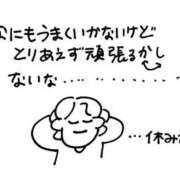 なにもうまくいかないけど
とりあえず頑張るかし
ないな……‥‥‥‥
…休み